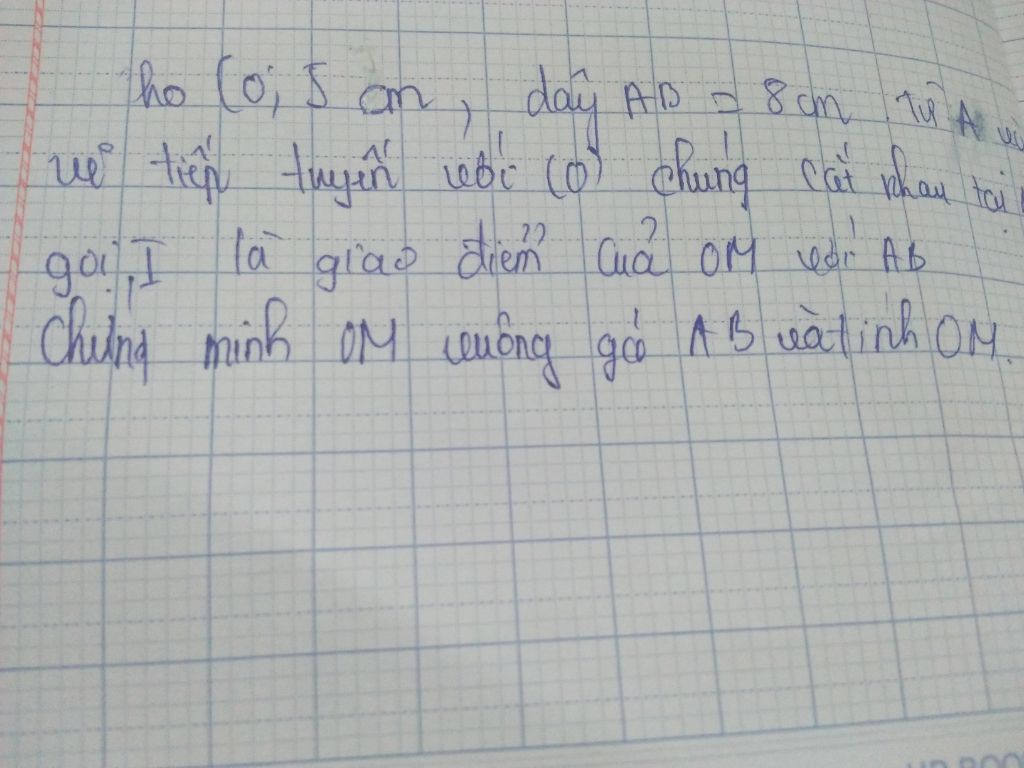 ho (O; 5 cm, dây AB = 8 cm. Từ A và
vẽ tiếp tuyến với (O) chúng cắt nhau tại
gọi I là giao điểm của OM với AB
Chứng minh OM vuông gó AB và tính OM.